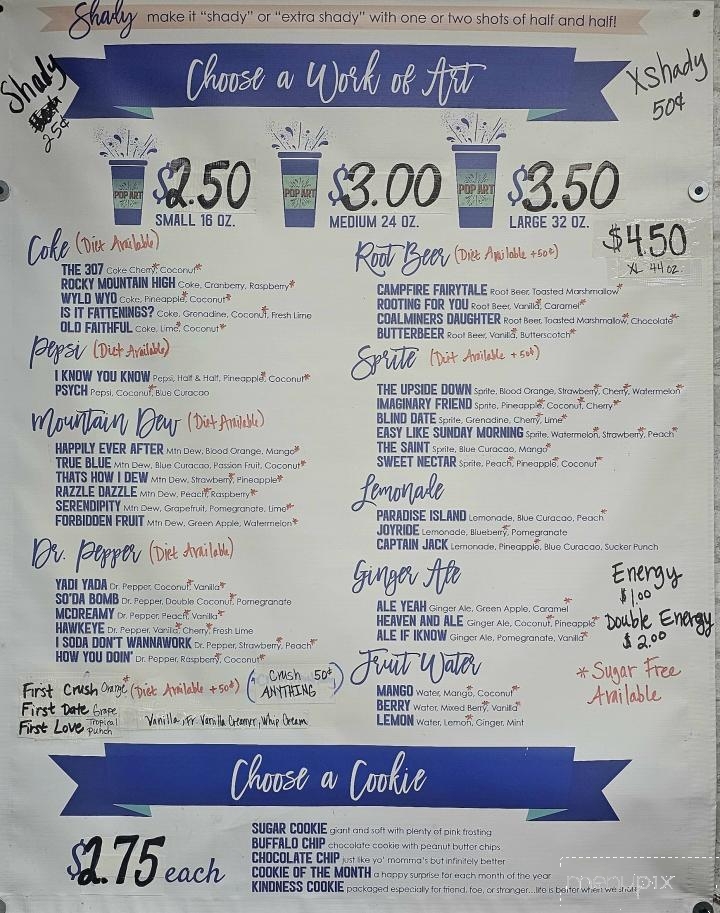 Shady make it "shady" or "extra shady" with one or two shots of half and half!
Shady
25¢
Choose a Work of Art
Xshady
50¢
POP ART
$2.50
SMALL 16 OZ.
POP ART
$3.00
MEDIUM 24 OZ.
POP ART
$3.50
LARGE 32 OZ.
$4.50
XL 44oz.
Coke (Diet Available)
THE 307 Coke Cherry, Coconut*
ROCKY MOUNTAIN HIGH Coke, Cranberry, Raspberry*
WYLD WYO Coke, Pineapple*, Coconut*
IS IT FATTENINGS? Coke, Grenadine, Coconut*, Fresh Lime
OLD FAITHFUL Coke, Lime*, Coconut*
Pepsi (Diet Available)
I KNOW YOU KNOW Pepsi, Half & Half, Pineapple*, Coconut*
PSYCH Pepsi, Coconut*, Blue Curacao
Mountain Dew (Diet Available)
HAPPILY EVER AFTER Mtn Dew, Blood Orange, Mango*
TRUE BLUE Mtn Dew, Blue Curacao, Passion Fruit, Coconut*
THATS HOW I DEW Mtn Dew, Strawberry*, Pineapple*
RAZZLE DAZZLE Mtn Dew, Peach*, Raspberry*
SERENDIPITY Mtn Dew, Grapefruit, Pomegranate, Lime*
FORBIDDEN FRUIT Mtn Dew, Green Apple, Watermelon*
Dr. Pepper (Diet Available)
YADI YADA Dr. Pepper, Coconut*, Vanilla*
SO'DA BOMB Dr. Pepper, Double Coconut*, Pomegranate
MCDREAMY Dr. Pepper, Peach*, Vanilla*
HAWKEYE Dr. Pepper, Vanilla*, Cherry*, Fresh Lime
I SODA DON'T WANNAWORK Dr. Pepper, Strawberry*, Peach*
HOW YOU DOIN' Dr. Pepper, Raspberry*, Coconut*
First Crush Orange* (Diet Available +50¢)
(Crush 50¢ ANYTHING)
First Date Grape
First Love Tropical Punch
Vanilla, Fr. Vanilla Creamer, Whip Cream
Root Beer (Diet Available +50¢)
CAMPFIRE FAIRYTALE Root Beer, Toasted Marshmallow*
ROOTING FOR YOU Root Beer, Vanilla*, Caramel*
COALMINERS DAUGHTER Root Beer, Toasted Marshmallow*, Chocolate*
BUTTERBEER Root Beer, Vanilla*, Butterscotch*
Sprite (Diet Available +50¢)
THE UPSIDE DOWN Sprite, Blood Orange, Strawberry*, Cherry*, Watermelon*
IMAGINARY FRIEND Sprite, Pineapple*, Coconut*, Cherry*
BLIND DATE Sprite, Grenadine, Cherry*, Lime*
EASY LIKE SUNDAY MORNING Sprite, Watermelon*, Strawberry*, Peach*
THE SAINT Sprite, Blue Curacao, Mango*
SWEET NECTAR Sprite, Peach*, Pineapple*, Coconut*
Lemonade
PARADISE ISLAND Lemonade, Blue Curacao, Peach*
JOYRIDE Lemonade, Blueberry*, Pomegranate
CAPTAIN JACK Lemonade, Pineapple*, Blue Curacao, Sucker Punch
Ginger Ale
ALE YEAH Ginger Ale, Green Apple, Caramel*
HEAVEN AND ALE Ginger Ale, Coconut*, Pineapple*
ALE IF IKNOW Ginger Ale, Pomegranate, Vanilla*
Fruit Water
MANGO Water, Mango*, Coconut*
BERRY Water, Mixed Berry*, Vanilla*
LEMON Water, Lemon*, Ginger, Mint
Energy
$1.00
Double Energy
$2.00
*Sugar Free
Available
Choose a Cookie
$2.75 each
SUGAR COOKIE giant and soft with plenty of pink frosting
BUFFALO CHIP chocolate cookie with peanut butter chips
CHOCOLATE CHIP just like yo' momma's but infinitely better
COOKIE OF THE MONTH a happy surprise for each month of the year
KINDNESS COOKIE packaged especially for friend, foe, or stranger...life is better when we share
menupix